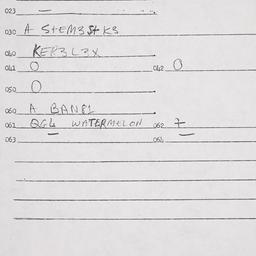 023 —
030 A StEM3St K3
040 KER3L3X
041 O 042 O
050 O
060 A BAN81
061 QG4 WATERMELON 062 7
063 — 064 —